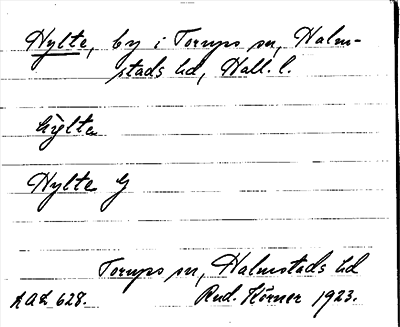 Hylte, by i Torups sn, Halm-
stads hd, Hall. l.
hy̆lte
Hylte G
Torups sn, Halmstads hd
Rud. Körner 1923.
628.